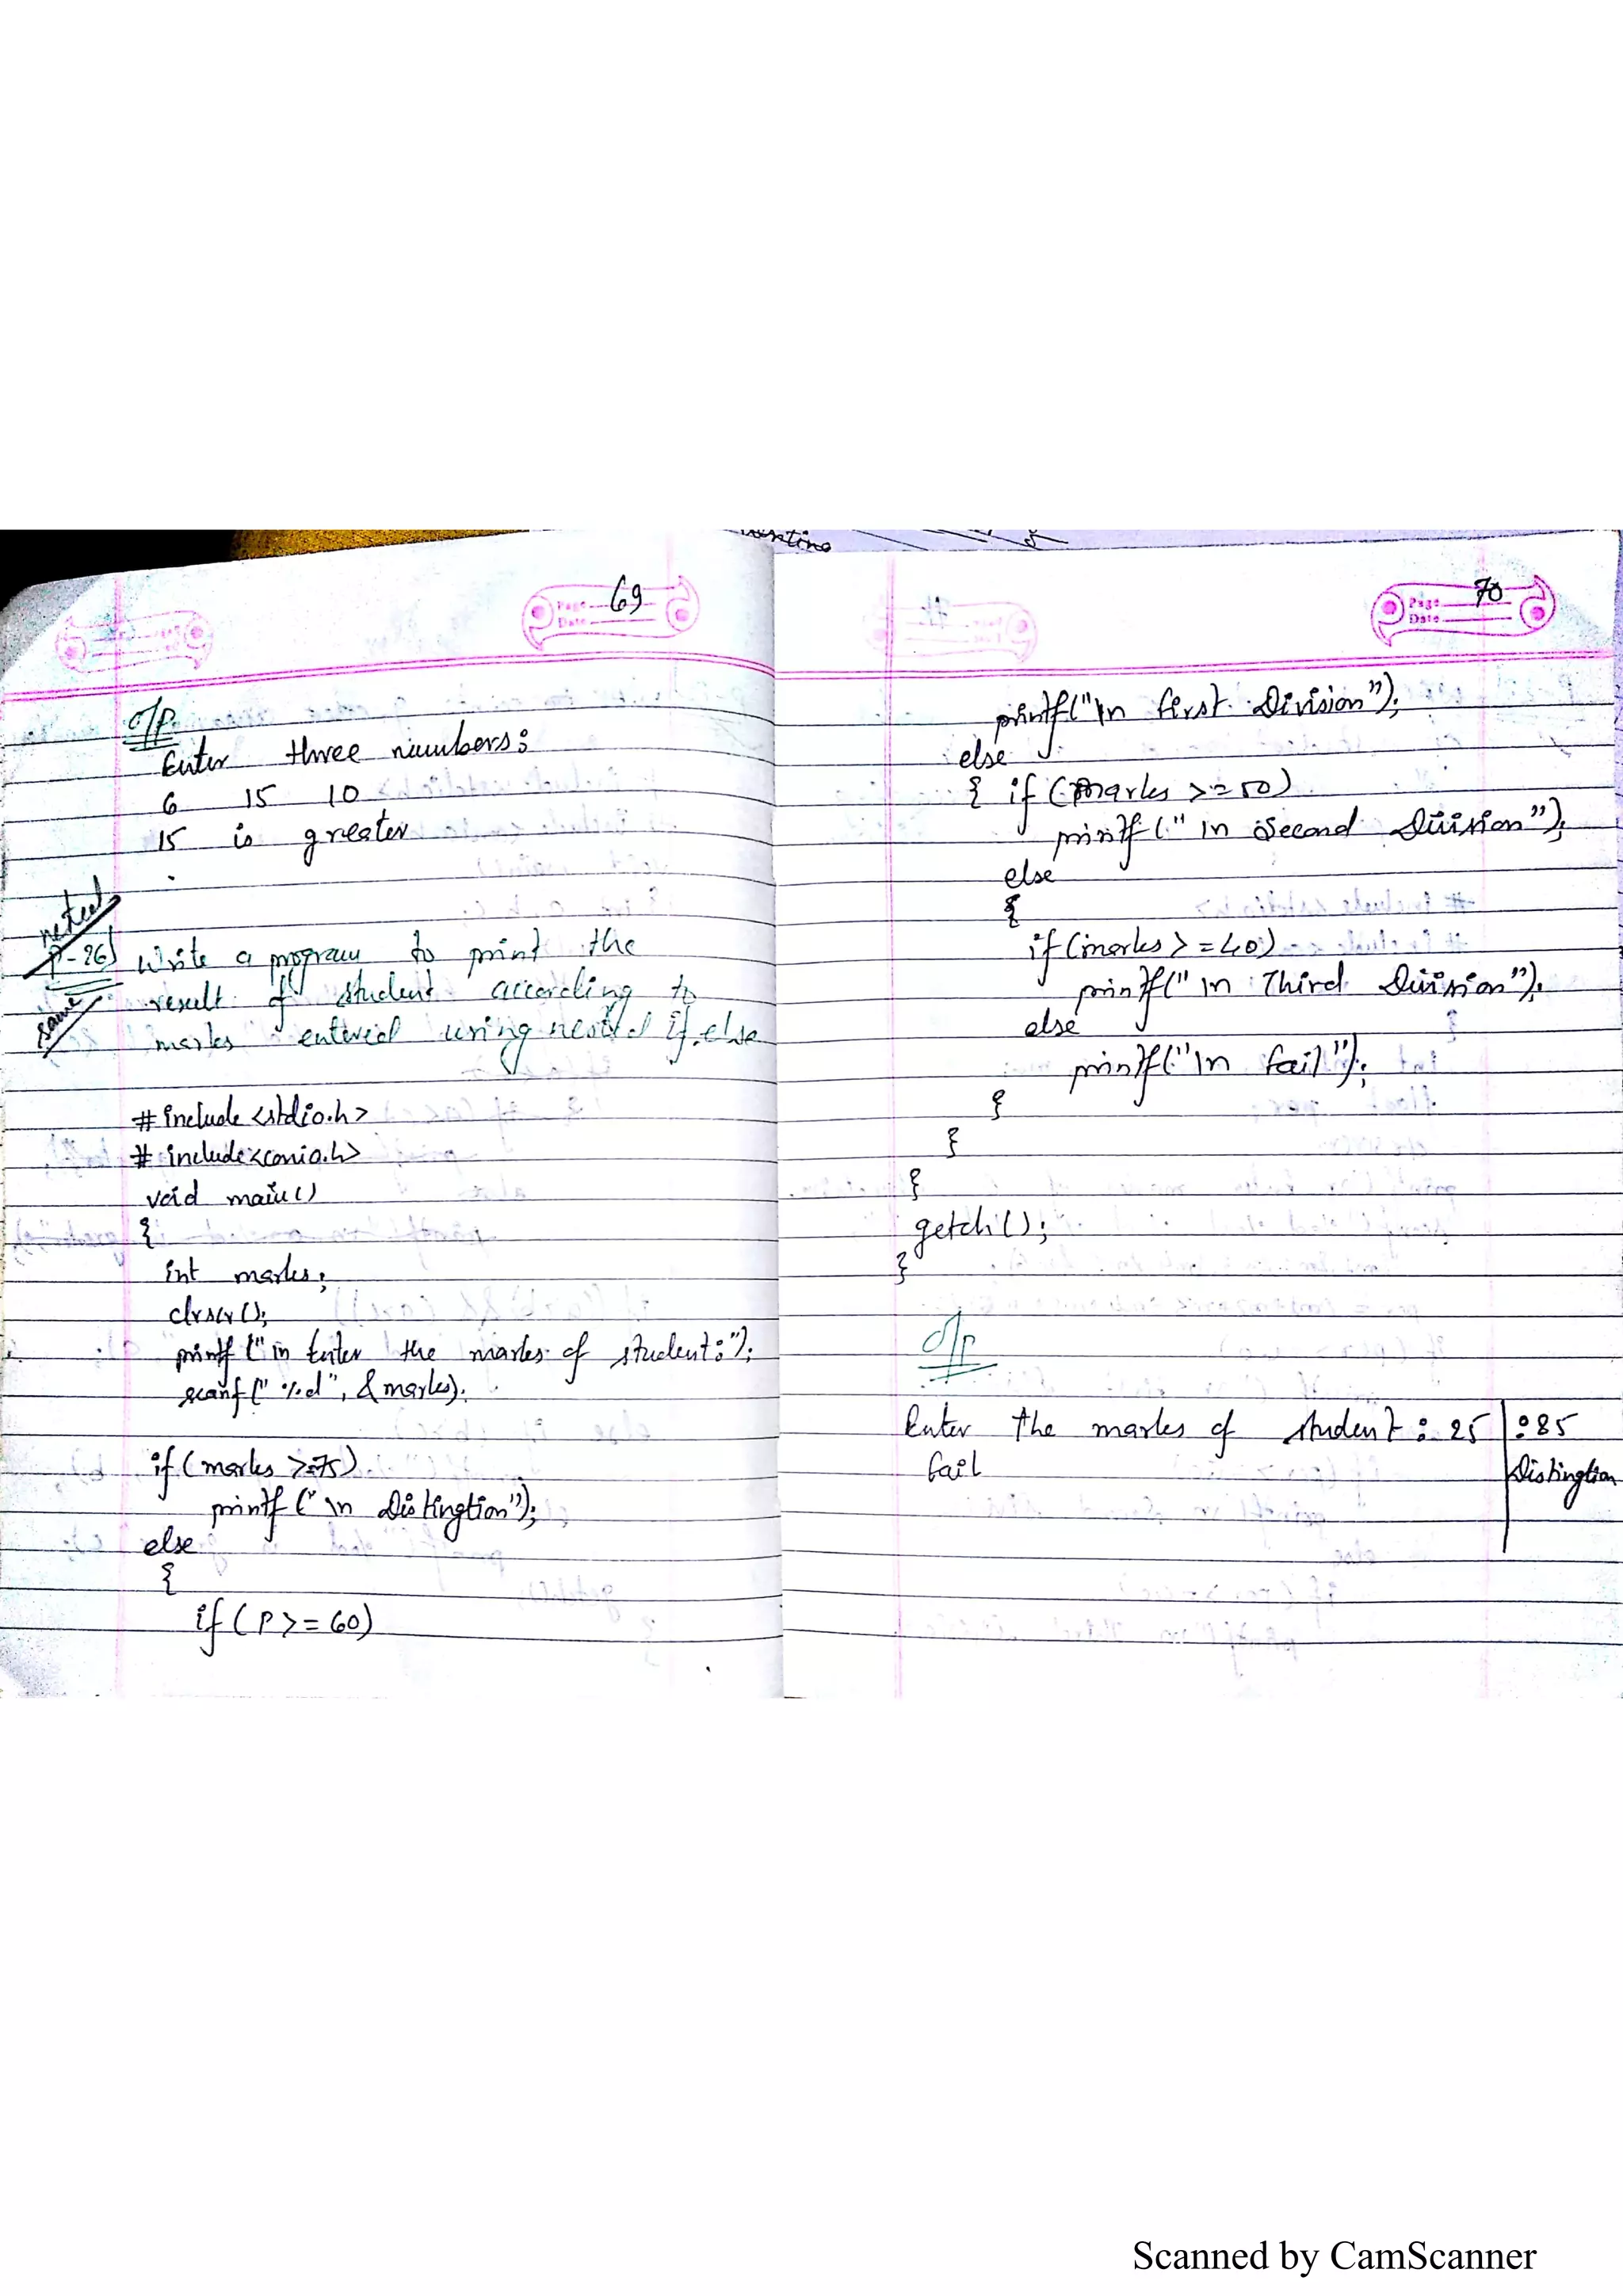 Page 69
Date
O/P
Enter three numbers:
6 15 10
15 is greater
nested
P-26) Write a program to print the
same
result of student according to
marks entered using nested if.else
#include <stdio.h>
#include<conio.h>
void main()
{
int marks;
clrscr();
printf("\n Enter the marks of student:");
scanf("%d", &marks);
if(marks >=75)
printf("\n Distingtion");
else
{
if(P>=60)
Page 70
Date
printf("\n first Division");
else
{ if(marks >=50)
printf("\n Second Division");
else
{
if(marks >=40)
printf("\n Third Division");
else
printf("\n fail");
}
}
}
getch();
}
O/P
Enter the marks of student: 25 | :85
fail | Distingtion
Scanned by CamScanner